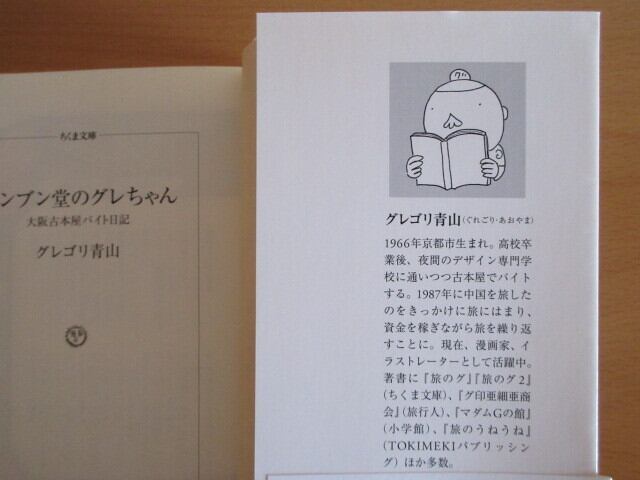 ちくま文庫
ンブン堂のグレちゃん
大阪古本屋バイト日記
グレゴリ青山
グ
グレゴリ青山(ぐれごり・あおやま)
1966年京都市生まれ。高校卒
業後、夜間のデザイン専門学
校に通いつつ古本屋でバイト
する。1987年に中国を旅した
のをきっかけに旅にはまり、
資金を稼ぎながら旅を繰り返
すことに。現在、漫画家、イ
ラストレーターとして活躍中。
著書に『旅のグ』『旅のグ2』
(ちくま文庫)、『グ印亜細亜商
会』(旅行人)、『マダムGの館』
(小学館)、『旅のうねうね』
(TOKIMEKIパブリッシン
グ) ほか多数。